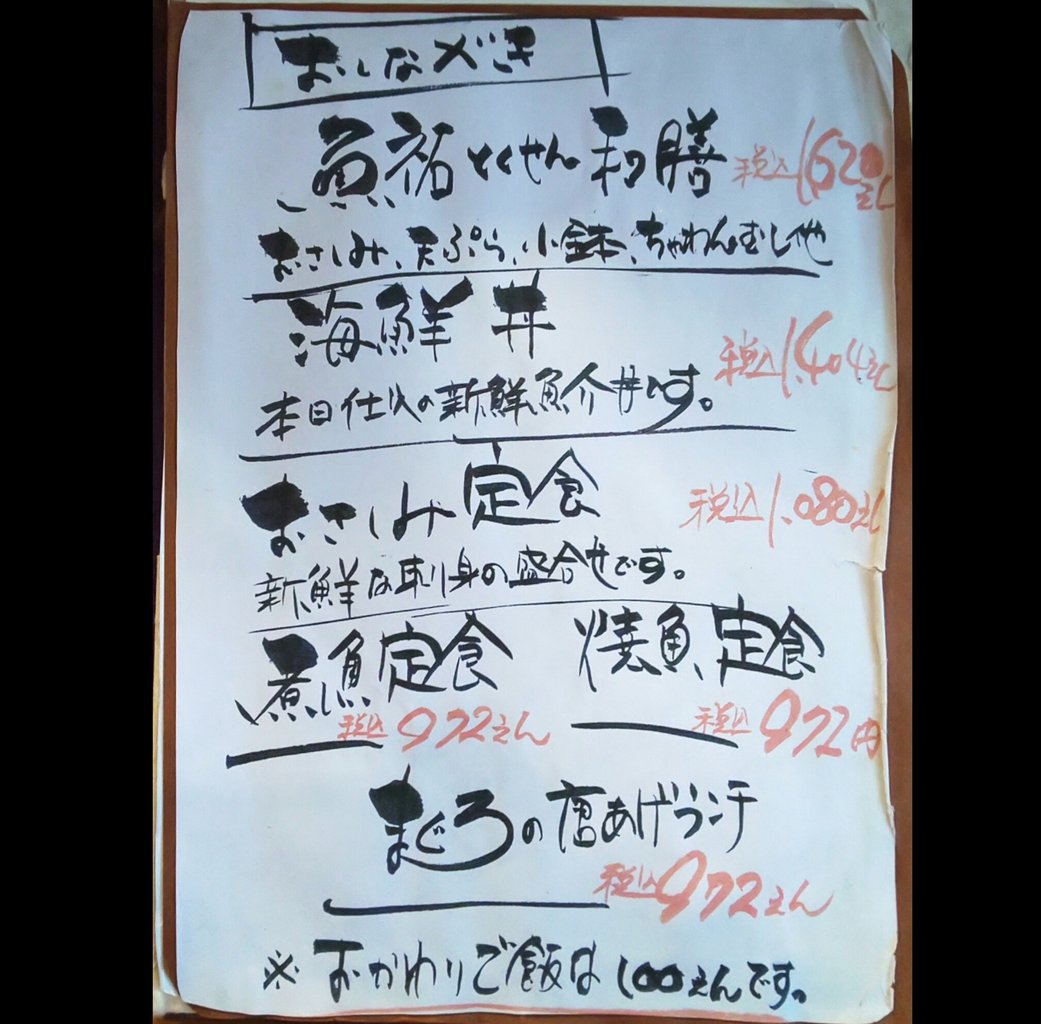 おしながき
魚祐とくせん和膳 税込1,620えん
おさしみ、天ぷら、小鉢、ちゃわんむし他
海鮮丼 税込1,404えん
本日仕込の新鮮魚介丼です。
おさしみ定食 税込1,080えん
新鮮な刺身の盛合せです。
煮魚定食 税込972えん
焼魚定食 税込972円
まぐろの唐あげランチ
税込972えん
※おかわりご飯は100えんです。